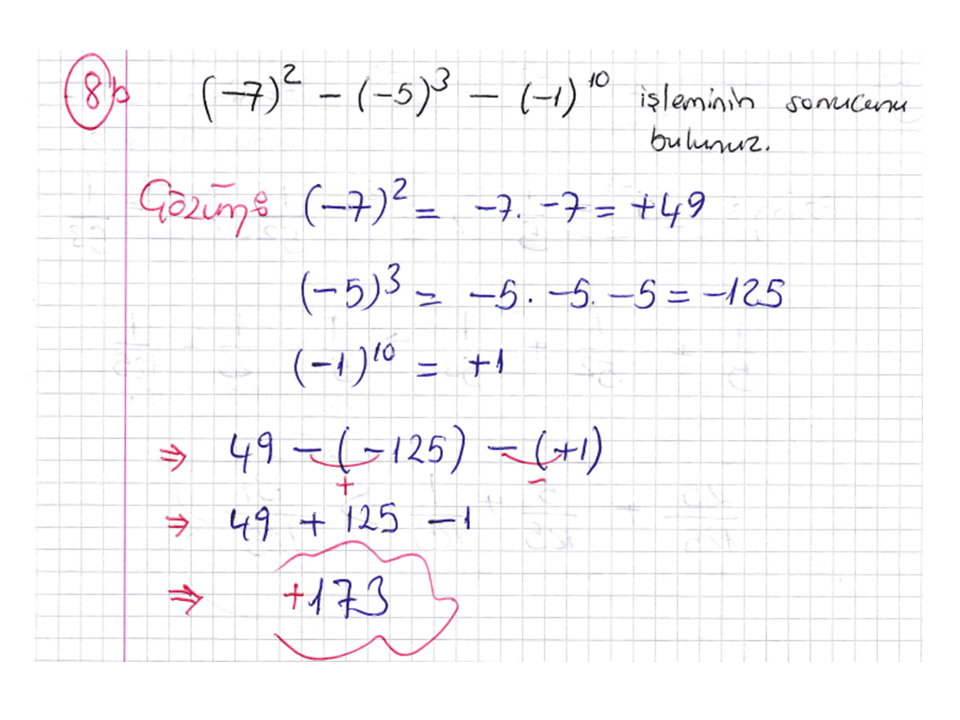 8) (-7)² - (-5)³ - (-1)¹⁰ işleminin sonucunu
bulunuz.
Çözüm: (-7)² = -7. -7 = +49
(-5)³ = -5. -5. -5 = -125
(-1)¹⁰ = +1
⇒ 49 - (-125) - (+1)
+ -
⇒ 49 + 125 - 1
⇒ +173